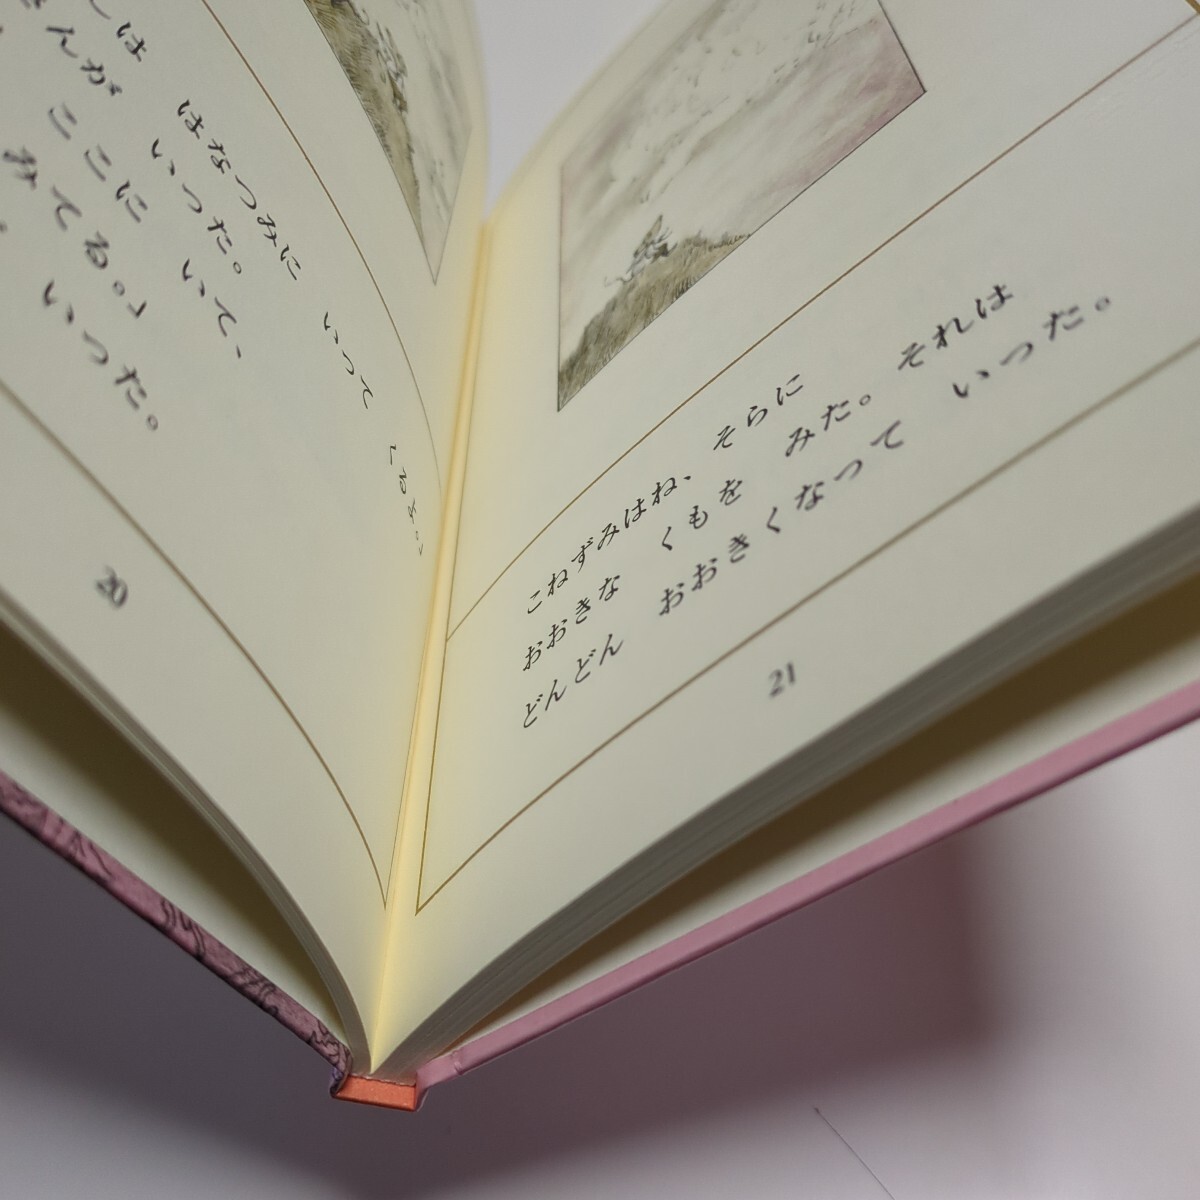 しは はなつみに いって くるよ。」
さんが いった。
ここに いて、
みてる。」
いった。
20
こねずみはね、 そらに
おおきな くもを みた。 それは
どんどん おおきくなって いった。
21